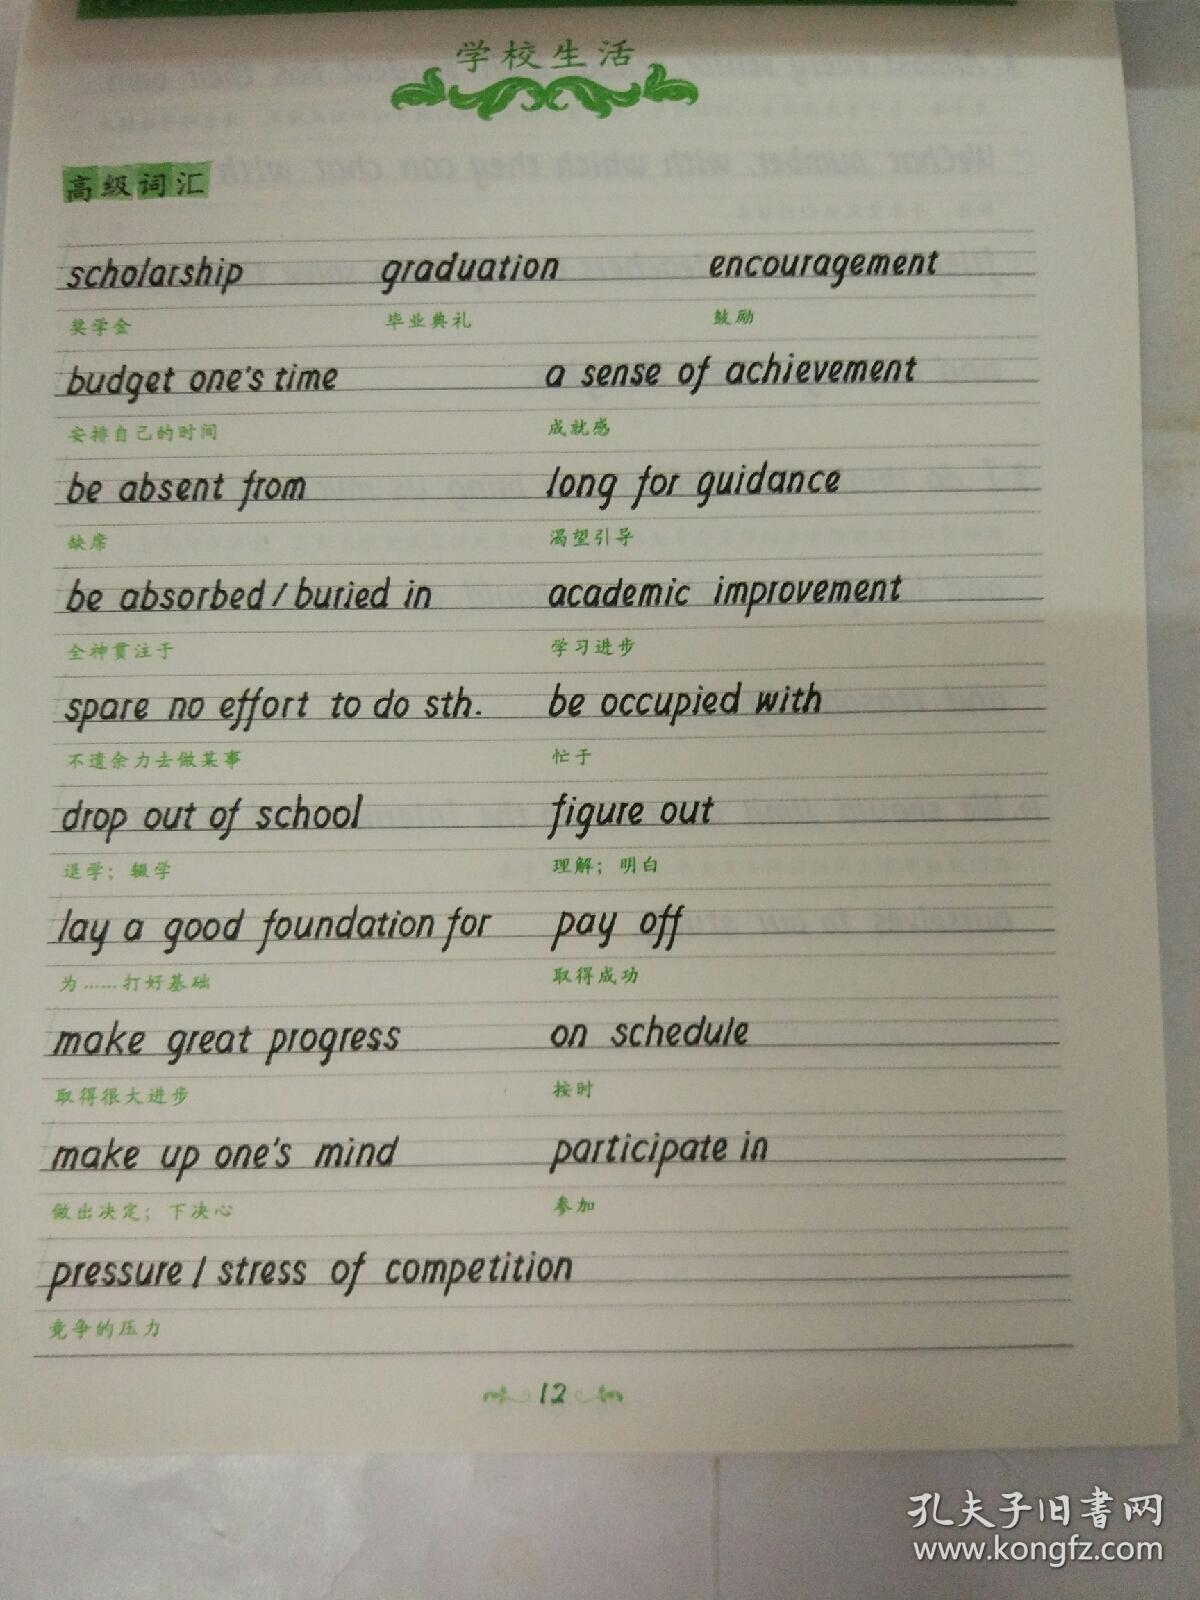 学校生活
高级词汇
scholarship graduation encouragement
奖学金 毕业典礼 鼓励
budget one's time a sense of achievement
安排自己的时间 成就感
be absent from long for guidance
缺席 渴望引导
be absorbed / buried in academic improvement
全神贯注于 学习进步
spare no effort to do sth. be occupied with
不遗余力去做某事 忙于
drop out of school figure out
退学；辍学 理解；明白
lay a good foundation for pay off
为……打好基础 取得成功
make great progress on schedule
取得很大进步 按时
make up one's mind participate in
做出决定；下决心 参加
pressure / stress of competition
竞争的压力
12
孔夫子旧书网
www.kongfz.com